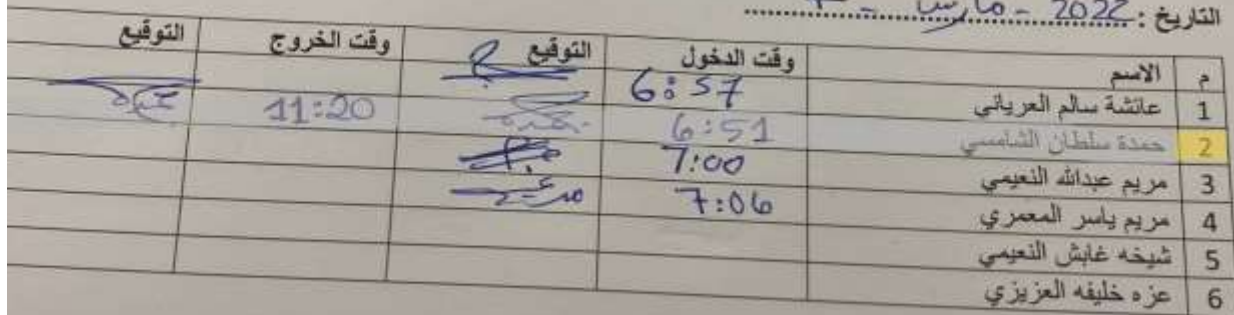 التاريخ : 2022 - مارس -
م الاسم وقت الدخول التوقيع وقت الخروج التوقيع
1 عائشة سالم العرياني 6:57
2 حمدة سلطان الشامسي 6:51 11:20
3 مريم عبدالله النعيمي 7:00
4 مريم ياسر المعمري 7:06
5 شيخه غابش النعيمي
6 عزه خليفه العزيزي